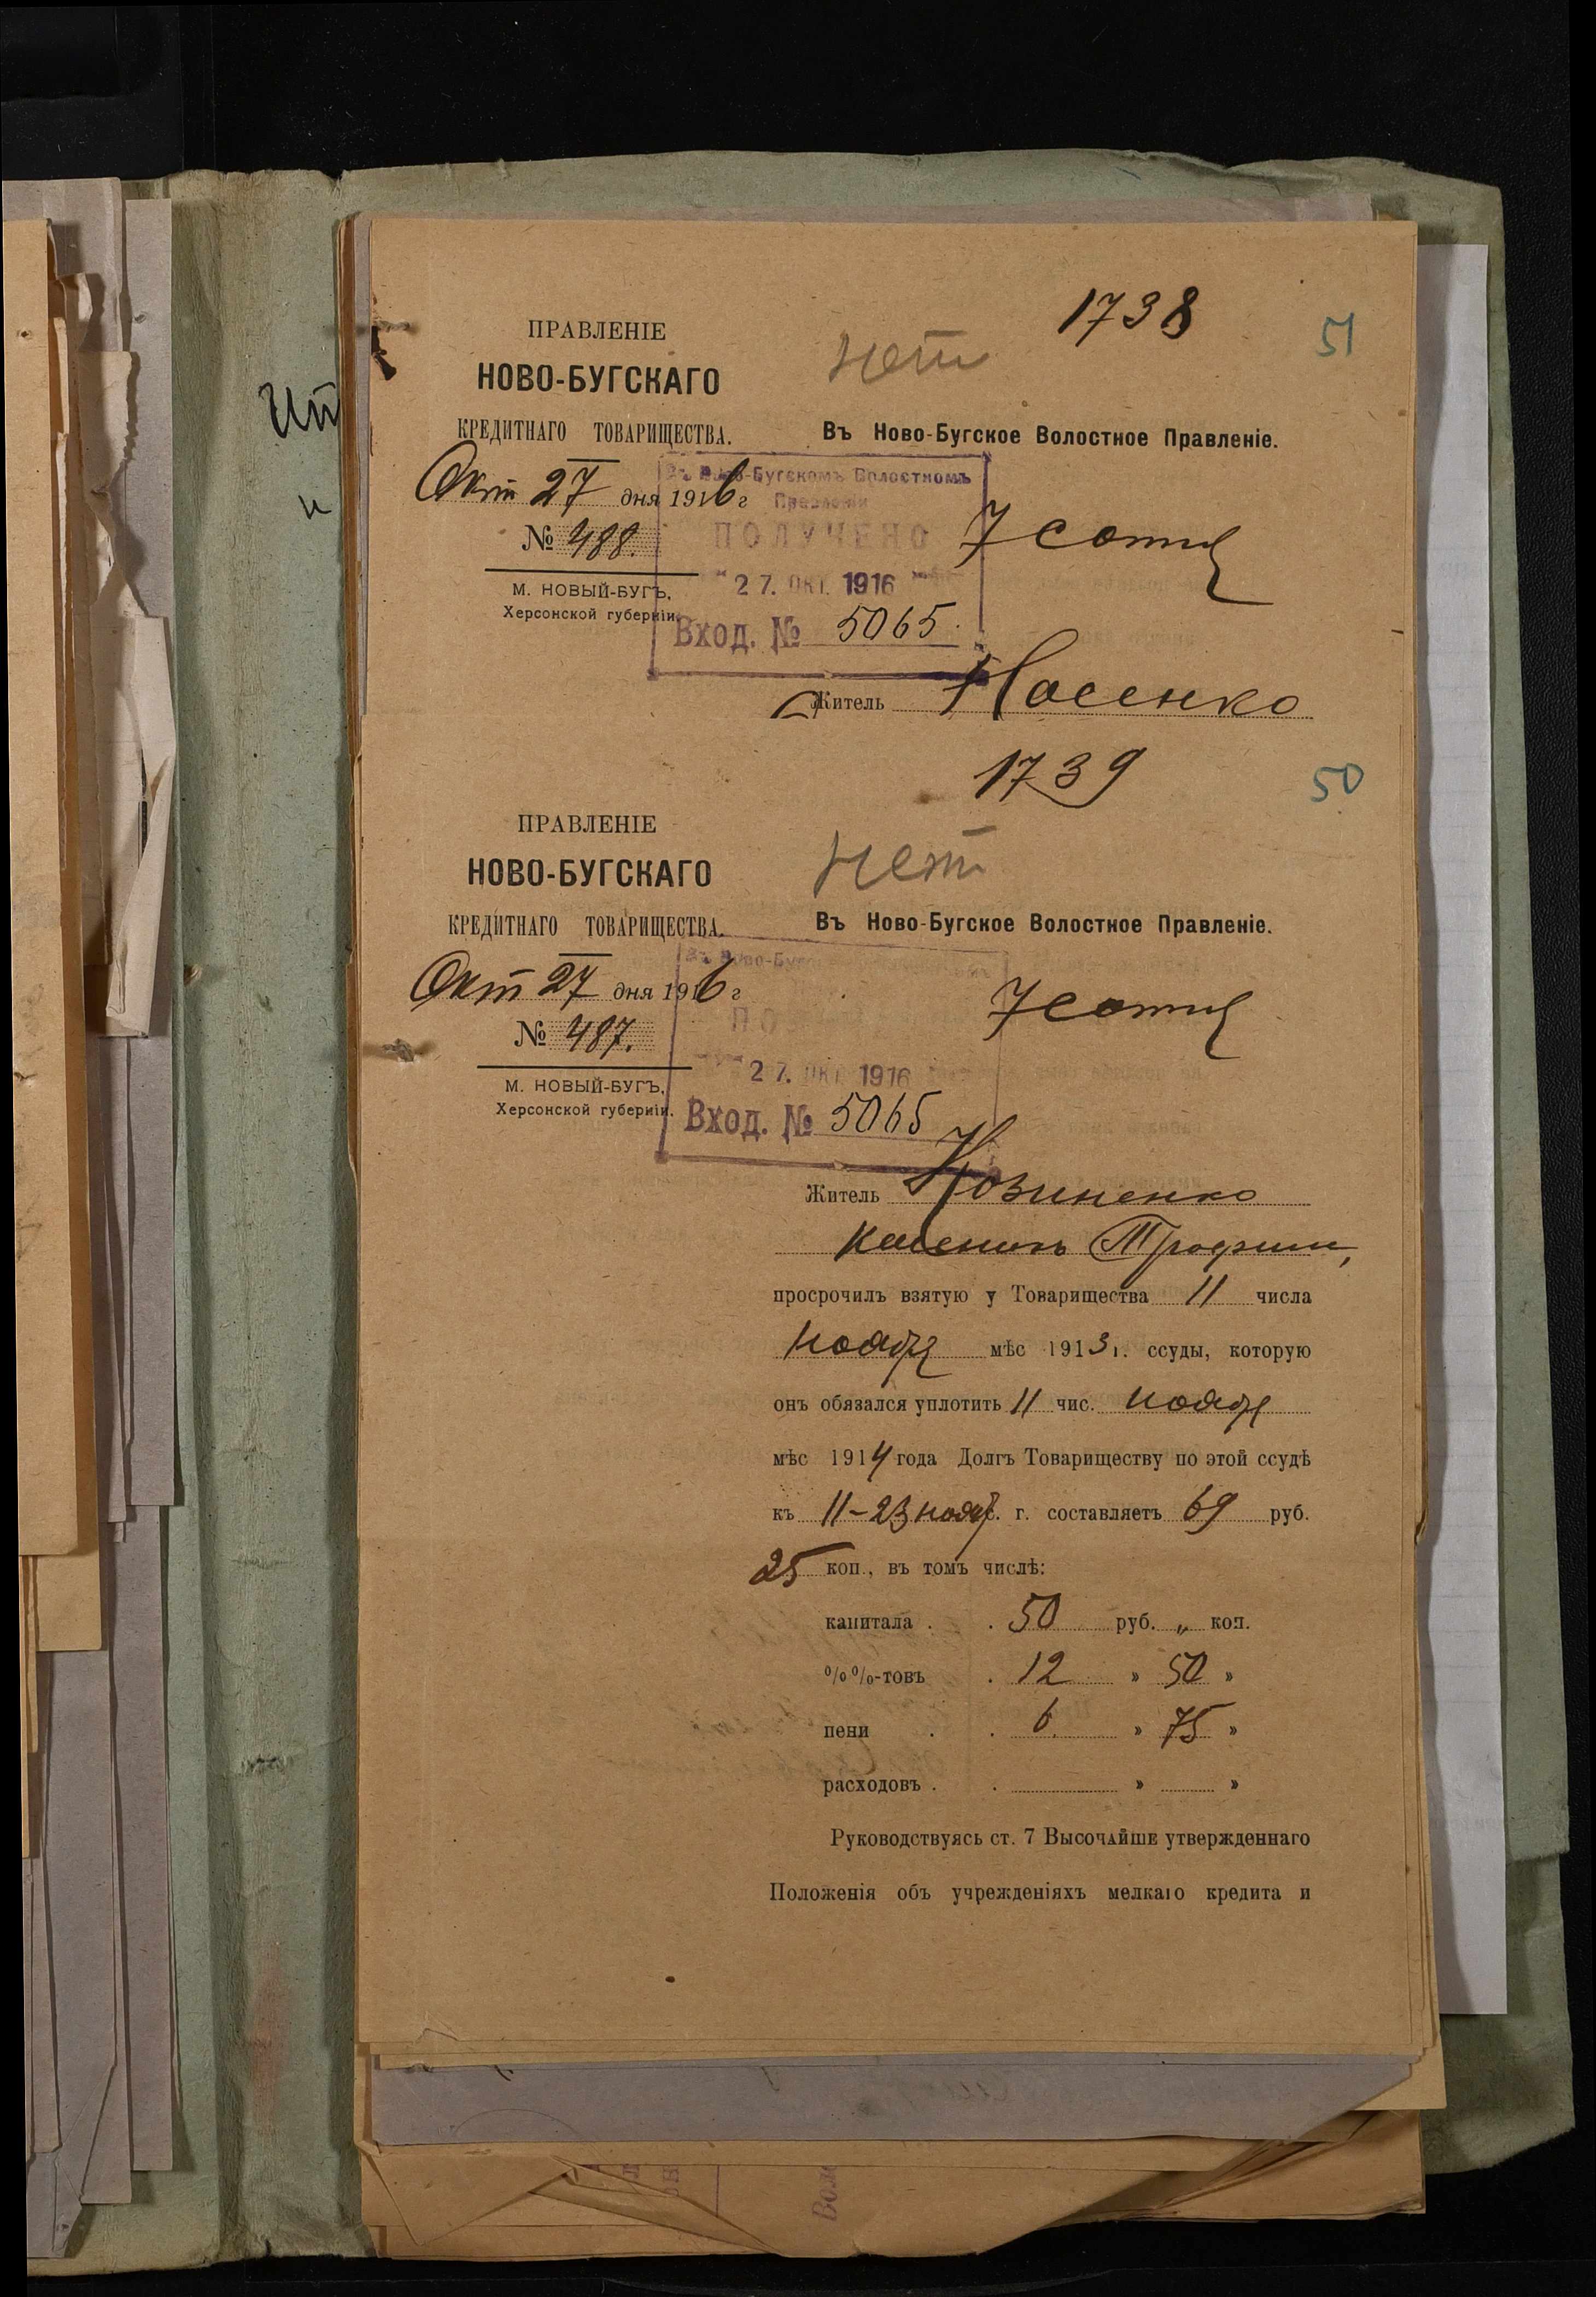 1738
51
ПРАВЛЕНІЕ
нет
НОВО-БУГСКАГО
КРЕДИТНАГО ТОВАРИЩЕСТВА.
Въ Ново-Бугское Волостное Правленіе.
Окт 27 дня 1916 г
Въ Ново-Бугскомъ Волостномъ
Правленіи
ПОЛУЧЕНО
7 сотня
№ 488.
27. ОКТ. 1916
М. НОВЫЙ-БУГЪ,
Херсонской губерніи.
Вход. № 5065.
Житель Носенко
1739
50
ПРАВЛЕНІЕ
нет
НОВО-БУГСКАГО
КРЕДИТНАГО ТОВАРИЩЕСТВА.
Въ Ново-Бугское Волостное Правленіе.
Въ Ново-Буг
Окт 27 дня 1916 г
7 сотня
№ 487.
27. ОКТ. 1916
М. НОВЫЙ-БУГЪ,
Херсонской губерніи.
Вход. № 5065
Житель Козиненко
Трофим,
просрочилъ взятую у Товарищества 11 числа
ноября мѣс 1913 г. ссуды, которую
онъ обязался уплотить 11 чис. ноября
мѣс 1914 года Долгъ Товариществу по этой ссудѣ
къ 11-23 нояб. г. составляетъ 69 руб.
25 коп., въ томъ числѣ:
капитала . . 50 руб. „ коп.
%%-товъ . 12 » 50 »
пени . . 6. » 75 »
расходовъ . . » »
Руководствуясь ст. 7 Высочайше утвержденнаго
Положенія объ учрежденіяхъ мелкаго кредита и